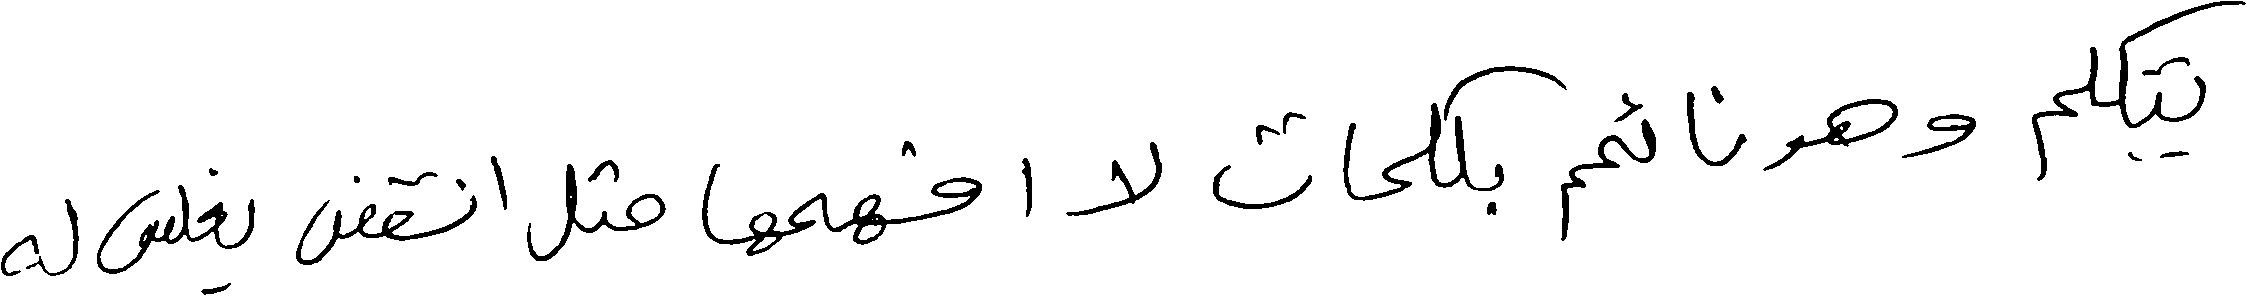 يتكلم وهو نائم بكلمات لا افهمها مثل انتقض يغلس له